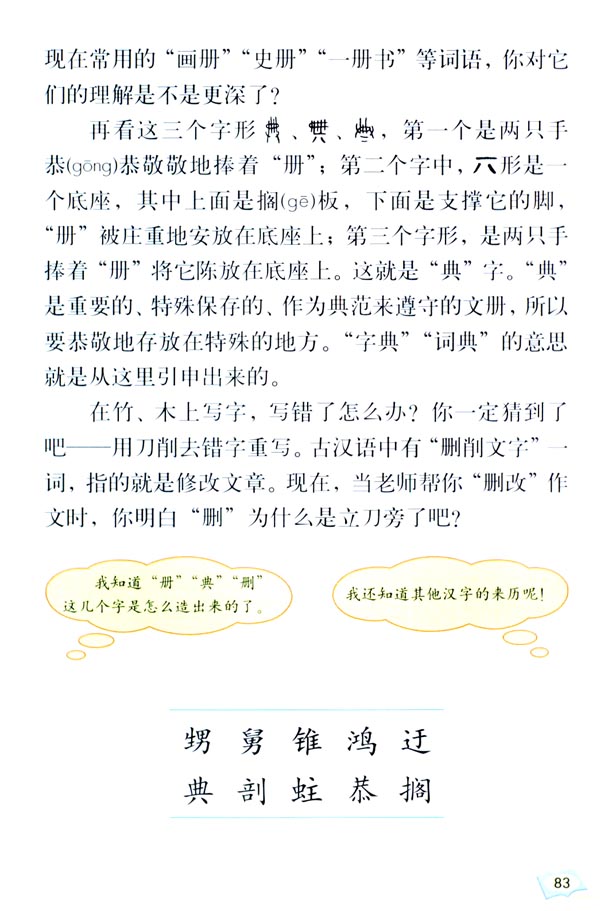 现在常用的“画册”“史册”“一册书”等词语，你对它
们的理解是不是更深了？
再看这三个字形、、，第一个是两只手
恭(gōng)恭敬敬地捧着“册”；第二个字中，形是一
个底座，其中上面是搁(gē)板，下面是支撑它的脚，
“册”被庄重地安放在底座上；第三个字形，是两只手
捧着“册”将它陈放在底座上。这就是“典”字。“典”
是重要的、特殊保存的、作为典范来遵守的文册，所以
要恭敬地存放在特殊的地方。“字典”“词典”的意思
就是从这里引申出来的。
在竹、木上写字，写错了怎么办？你一定猜到了
吧——用刀削去错字重写。古汉语中有“删削文字”一
词，指的就是修改文章。现在，当老师帮你“删改”作
文时，你明白“删”为什么是立刀旁了吧？
我知道“册”“典”“删”
这几个字是怎么造出来的了。
我还知道其他汉字的来历呢！
甥 舅 锥 鸿 迂
典 剖 蛀 恭 搁
83